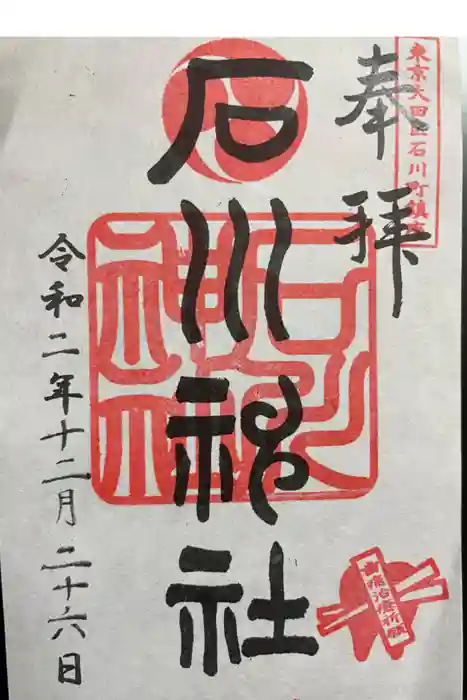 東京大田区石川町鎮座
奉拝
石川神社
石川神社
令和二年十二月二十六日